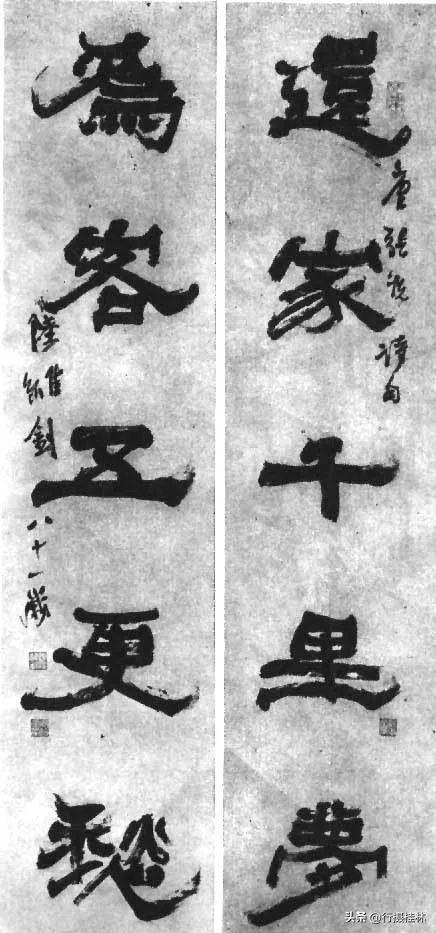 還家千里夢
唐張詩句
為客五更愁
陸維釗 八十一歲
头条 @行摄桂林